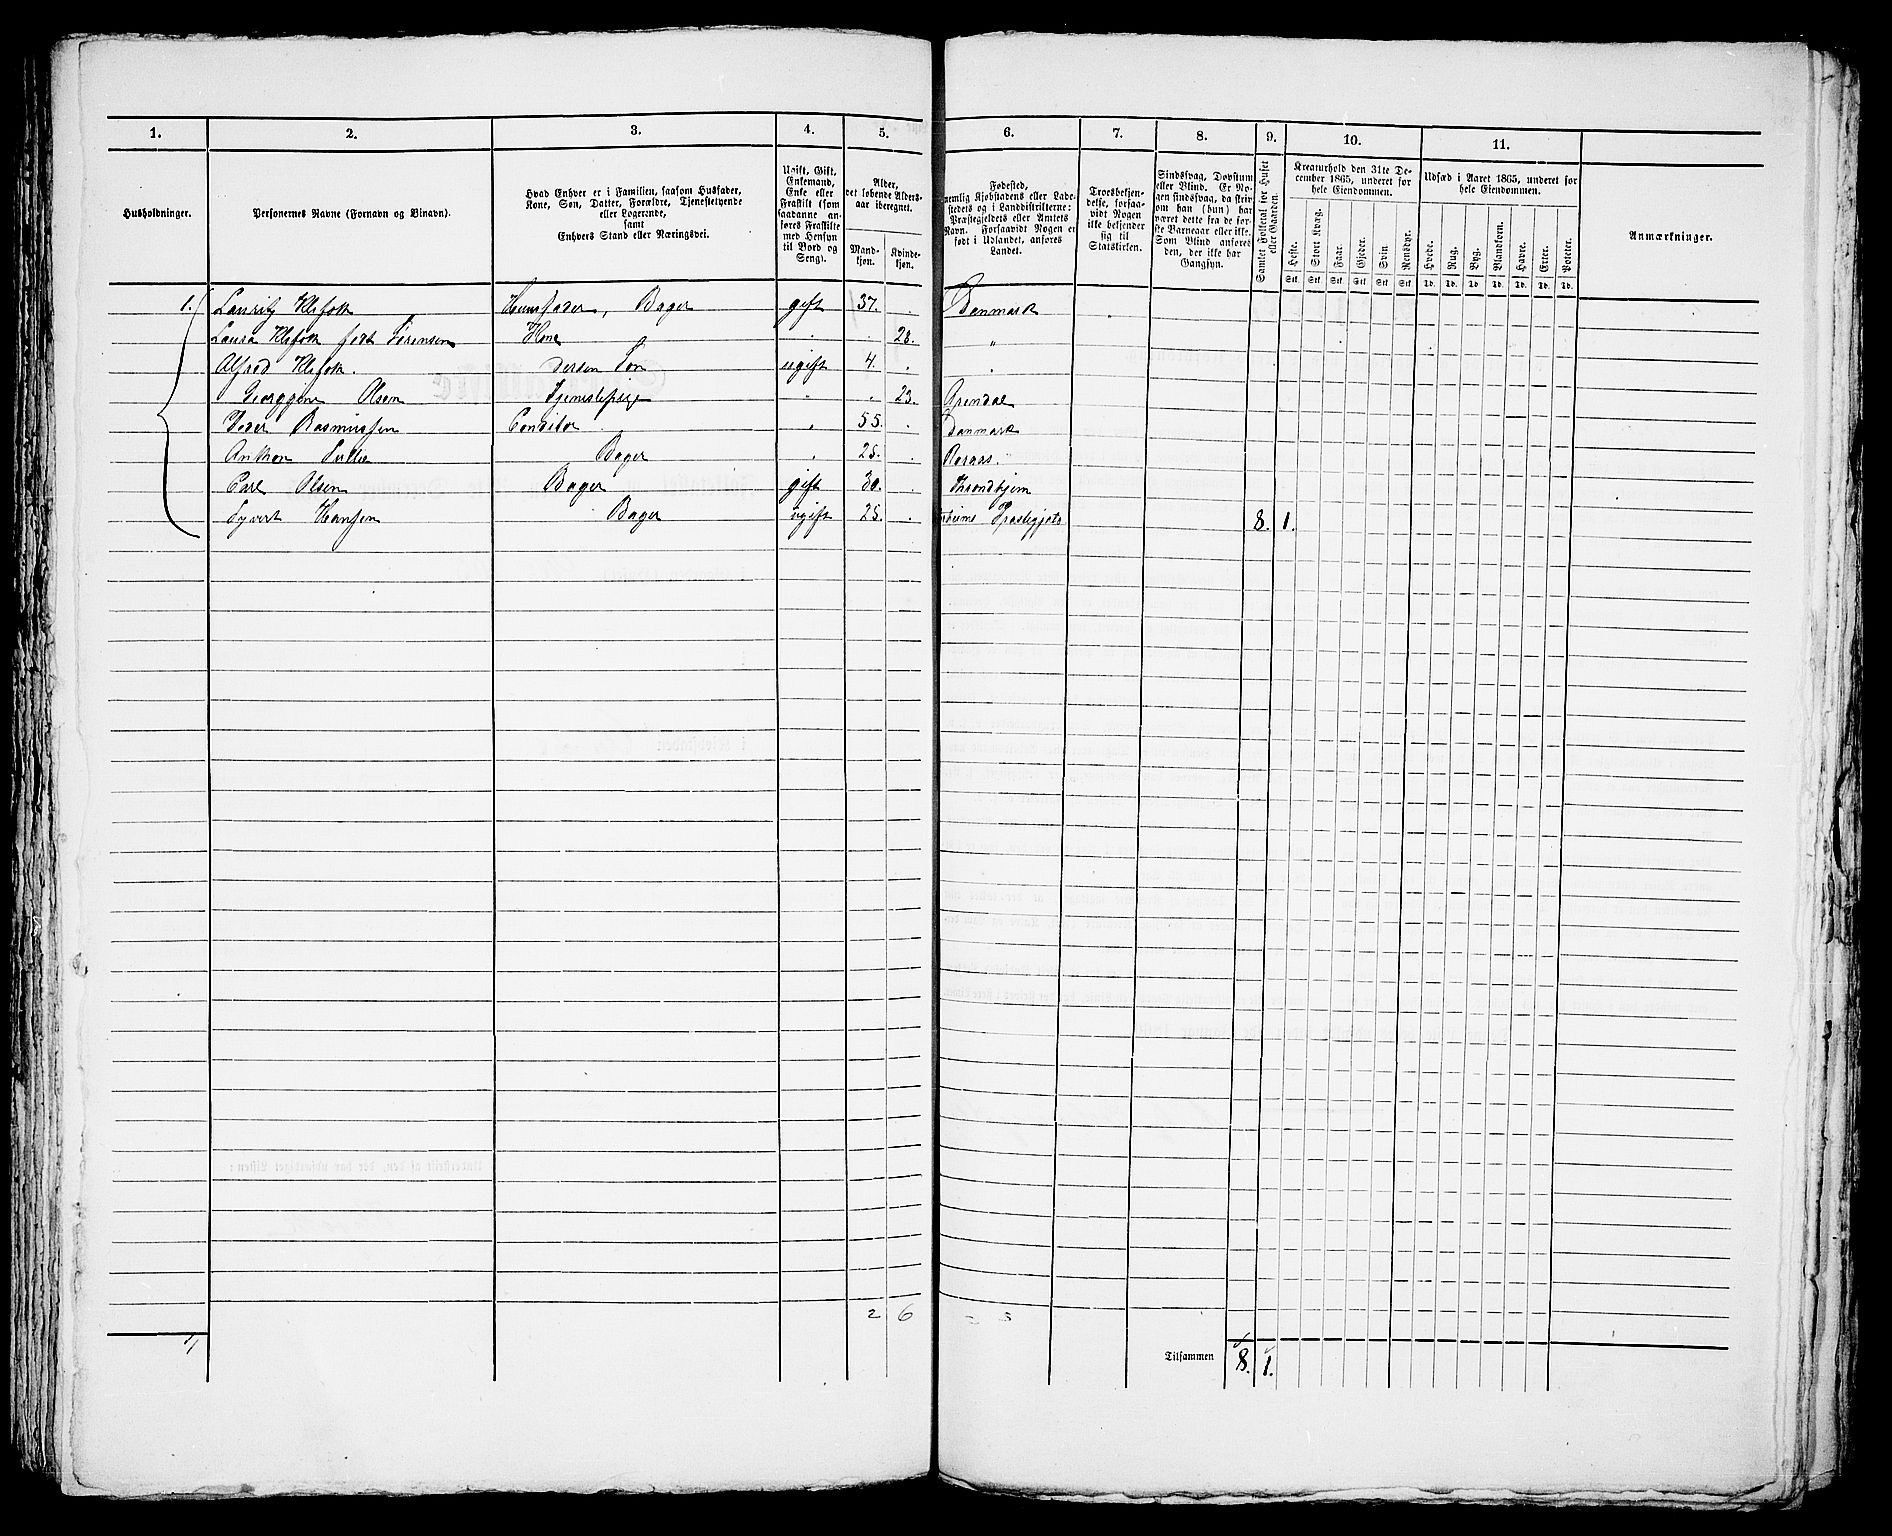 1. 2. 3. 4. 5. 6. 7. 8. 9. 10. 11.
Husholdninger.
Personernes Navne (Fornavn og Binavn).
Hvad Enhver er i Familien, saasom Husfader,
Kone, Søn, Datter, Forældre, Tjenestetyende
eller Logerende,
samt
Enhvers Stand eller Næringsvei.
Ugift, Gift,
Enkemand,
Enke eller
Fraskilt (som
saadanne an-
føres Fraskilte
med Hensyn
til Bord og
Seng).
Alder,
det løbende Alders-
aar iberegnet.
Mand-
kjøn.
Kvinde-
kjøn.
Fødested,
nemlig Kjøbstadens eller Lade-
stedets og i Landdistrikterne:
Præstegjeldets eller Amtets
Navn. Forsaavidt Nogen er
født i Udlandet, anføres
Landet.
Troesbekjen-
delse, forsaa-
vidt Nogen
ikke bekjender
sig til
Statskirken.
Sindssvag, Døvstum
eller Blind. Er No-
gen sindssvag, da skriv
om han (hun) har
været dette fra de før-
ste Barneaar eller ikke.
Som Blind anføres
den, der ikke har
Gangsyn.
Samlet Folketal for Huset
eller Gaarden.
Kreaturhold den 31te De-
cember 1865, underet for
hele Eiendommen.
Heste. Stort Kvæg. Faar. Gjeder. Svin Rensdyr.
Stk. Stk. Stk. Stk. Stk Stk
Udsæd i Aaret 1865, underet for
hele Eiendommen.
Hvede. Rug. Byg. Blandkorn. Havre. Erter. Poteter.
Td. Td. Td Td. Td. Td. Td.
Anmærkninger.
1. Lauritz Husfader, Bager gift 37. Danmark
Laura født Sørensen Kone 28. "
Alfred deres Søn ugift 4. "
Georgine Olsen Tjenestepige " 23. Arendal
Peder Rasmussen Conditor " 55. Danmark
Anthon Bager " 25. Roraas.
Carl Olsen Bager gift 30. Throndhjem
Syvert Hansen Bager ugift 25. 8. 1.
2 6
Tilsammen 8. 1.